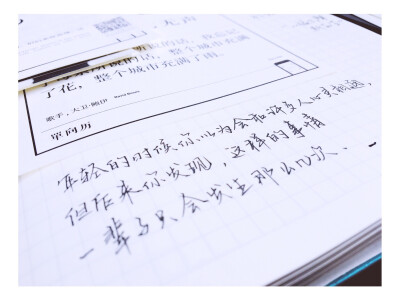 了花，整个城市充满了雨。
歌手，大卫·鲍伊
David Bowie
單向历
年轻的时候你以为会和许多人心灵相通，
但后来你发现，这样的事情
一辈子只会发生那么几次.